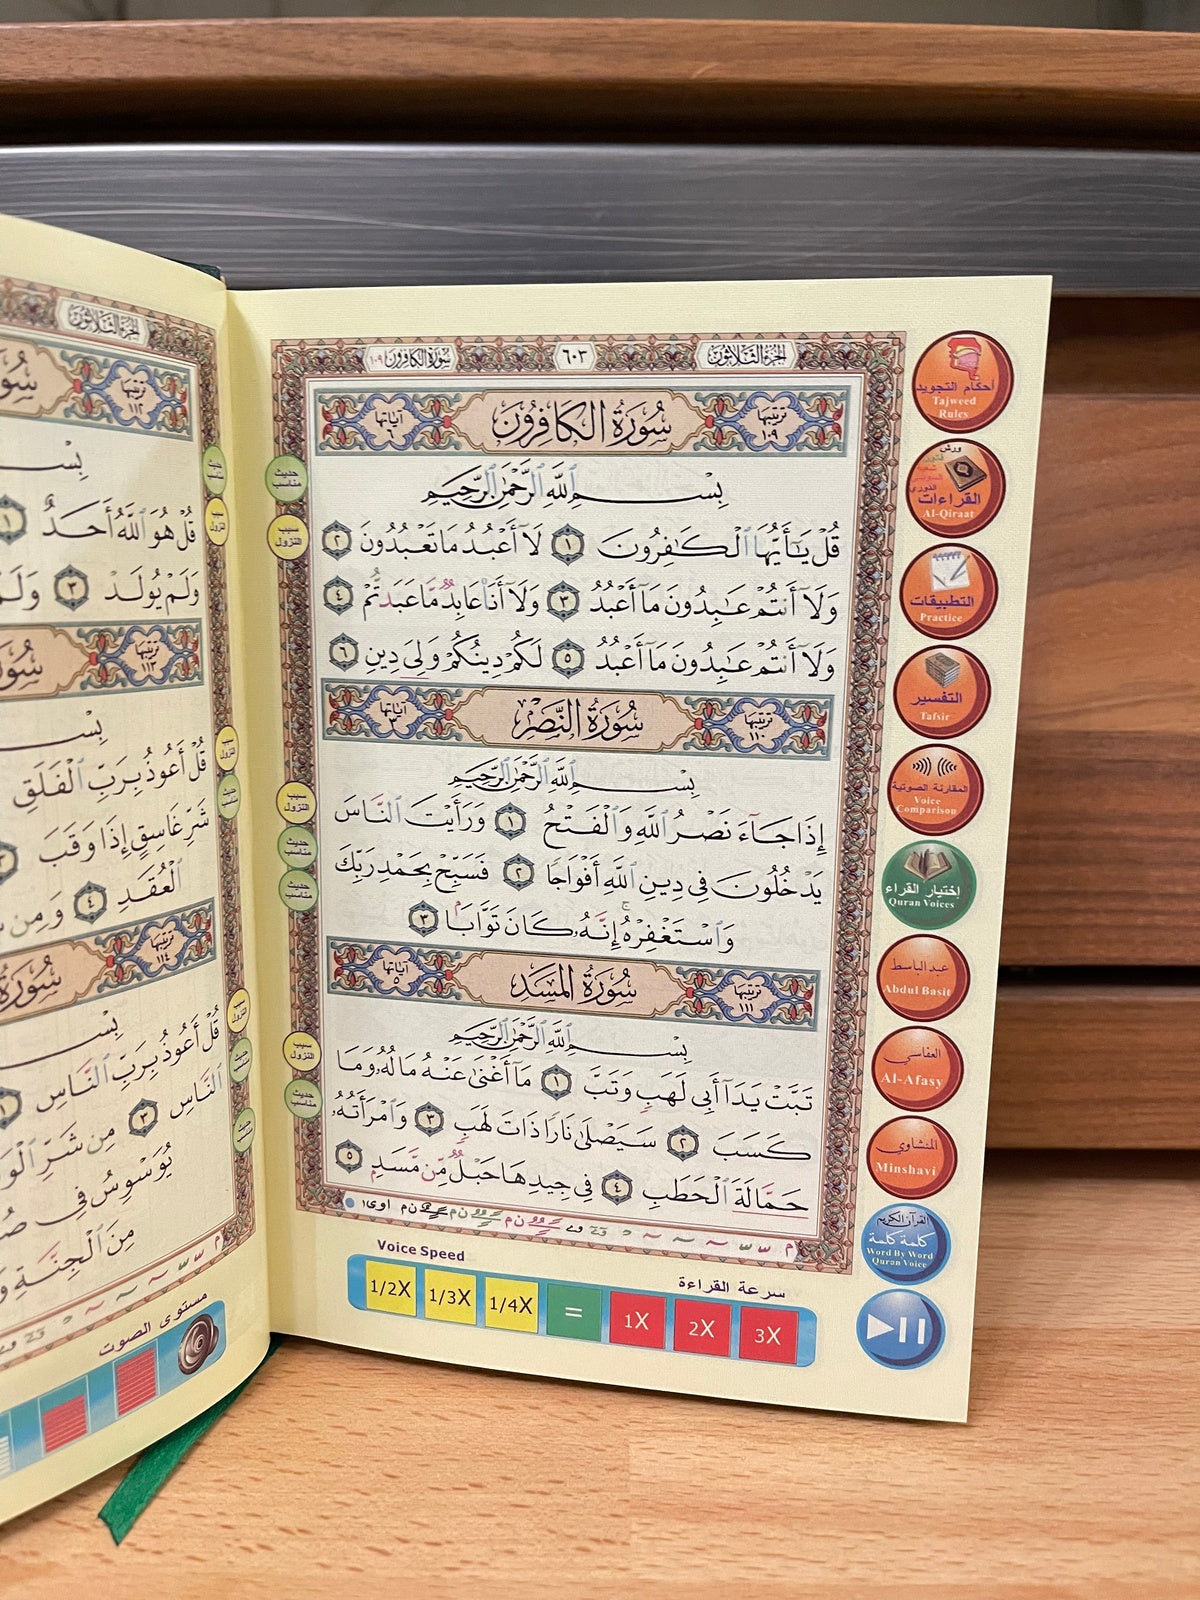 سورة الكافرون ١٠٩
٦٠٣
الجزء الثلاثون
ترتيبها ١٠٩
سُورَةُ الكَافِرُون
آياتها ٦
بِسْمِ ٱللَّهِ ٱلرَّحْمَٰنِ ٱلرَّحِيمِ
قُلْ يَٰٓأَيُّهَا ٱلْكَٰفِرُونَ ١ لَآ أَعْبُدُ مَا تَعْبُدُونَ ٢
وَلَآ أَنتُمْ عَٰبِدُونَ مَآ أَعْبُدُ ٣ وَلَآ أَنَا۠ عَابِدٌ مَّا عَبَدتُّمْ ٤
وَلَآ أَنتُمْ عَٰبِدُونَ مَآ أَعْبُدُ ٥ لَكُمْ دِينُكُمْ وَلِىَ دِينِ ٦
ترتيبها ١١٠
سُورَةُ النَّصْر
آياتها ٣
بِسْمِ ٱللَّهِ ٱلرَّحْمَٰنِ ٱلرَّحِيمِ
إِذَا جَآءَ نَصْرُ ٱللَّهِ وَٱلْفَتْحُ ١ وَرَأَيْتَ ٱلنَّاسَ
يَدْخُلُونَ فِى دِينِ ٱللَّهِ أَفْوَاجًا ٢ فَسَبِّحْ بِحَمْدِ رَبِّكَ
وَٱسْتَغْفِرْهُ إِنَّهُۥ كَانَ تَوَّابًۢا ٣
ترتيبها ١١١
سُورَةُ المَسَد
آياتها ٥
بِسْمِ ٱللَّهِ ٱلرَّحْمَٰنِ ٱلرَّحِيمِ
تَبَّتْ يَدَآ أَبِى لَهَبٍ وَتَبَّ ١ مَآ أَغْنَىٰ عَنْهُ مَالُهُۥ وَمَا
كَسَبَ ٢ سَيَصْلَىٰ نَارًا ذَاتَ لَهَبٍ ٣ وَٱمْرَأَتُهُۥ
حَمَّالَةَ ٱلْحَطَبِ ٤ فِى جِيدِهَا حَبْلٌ مِّن مَّسَدٍۭ ٥
حديث مناسب
سبب النزول
سبب النزول
حديث مناسب
حديث مناسب
سبب النزول
حديث مناسب
Voice Speed
سرعة القراءة
1/2X 1/3X 1/4X = 1X 2X 3X
أحكام التجويد
Tajweed
Rules
ورش
القراءات
Al-Qiraat
التطبيقات
Practice
التفسير
Tafsir
المقارنة الصوتية
Voice
Comparison
إختيار القراء
Quran Voices
عبد الباسط
Abdul Basit
العفاسي
Al-Afasy
المنشاوي
Minshavi
القرآن الكريم
كلمة كلمة
Word By Word
Quran Voice
الجزء الثلاثون
ترتيبها ١١٢
بِسْ
قُلْ هُوَ ٱللَّهُ أَحَدٌ ١
وَلَمْ يُولَدْ ٣
ترتيبها ١١٣
بِسْ
قُلْ أَعُوذُ بِرَبِّ ٱلْفَلَقِ
شَرِّ غَاسِقٍ إِذَا وَقَبَ
ٱلْعُقَدِ ٤ وَمِن
ترتيبها ١١٤
سُورَة
بِسْ
قُلْ أَعُوذُ بِرَبِّ ٱلنَّاسِ ١
ٱلنَّاسِ ٣ مِن شَرِّ
يُوَسْوِسُ فِى
مِنَ ٱلْجِنَّةِ
مستوى الصوت